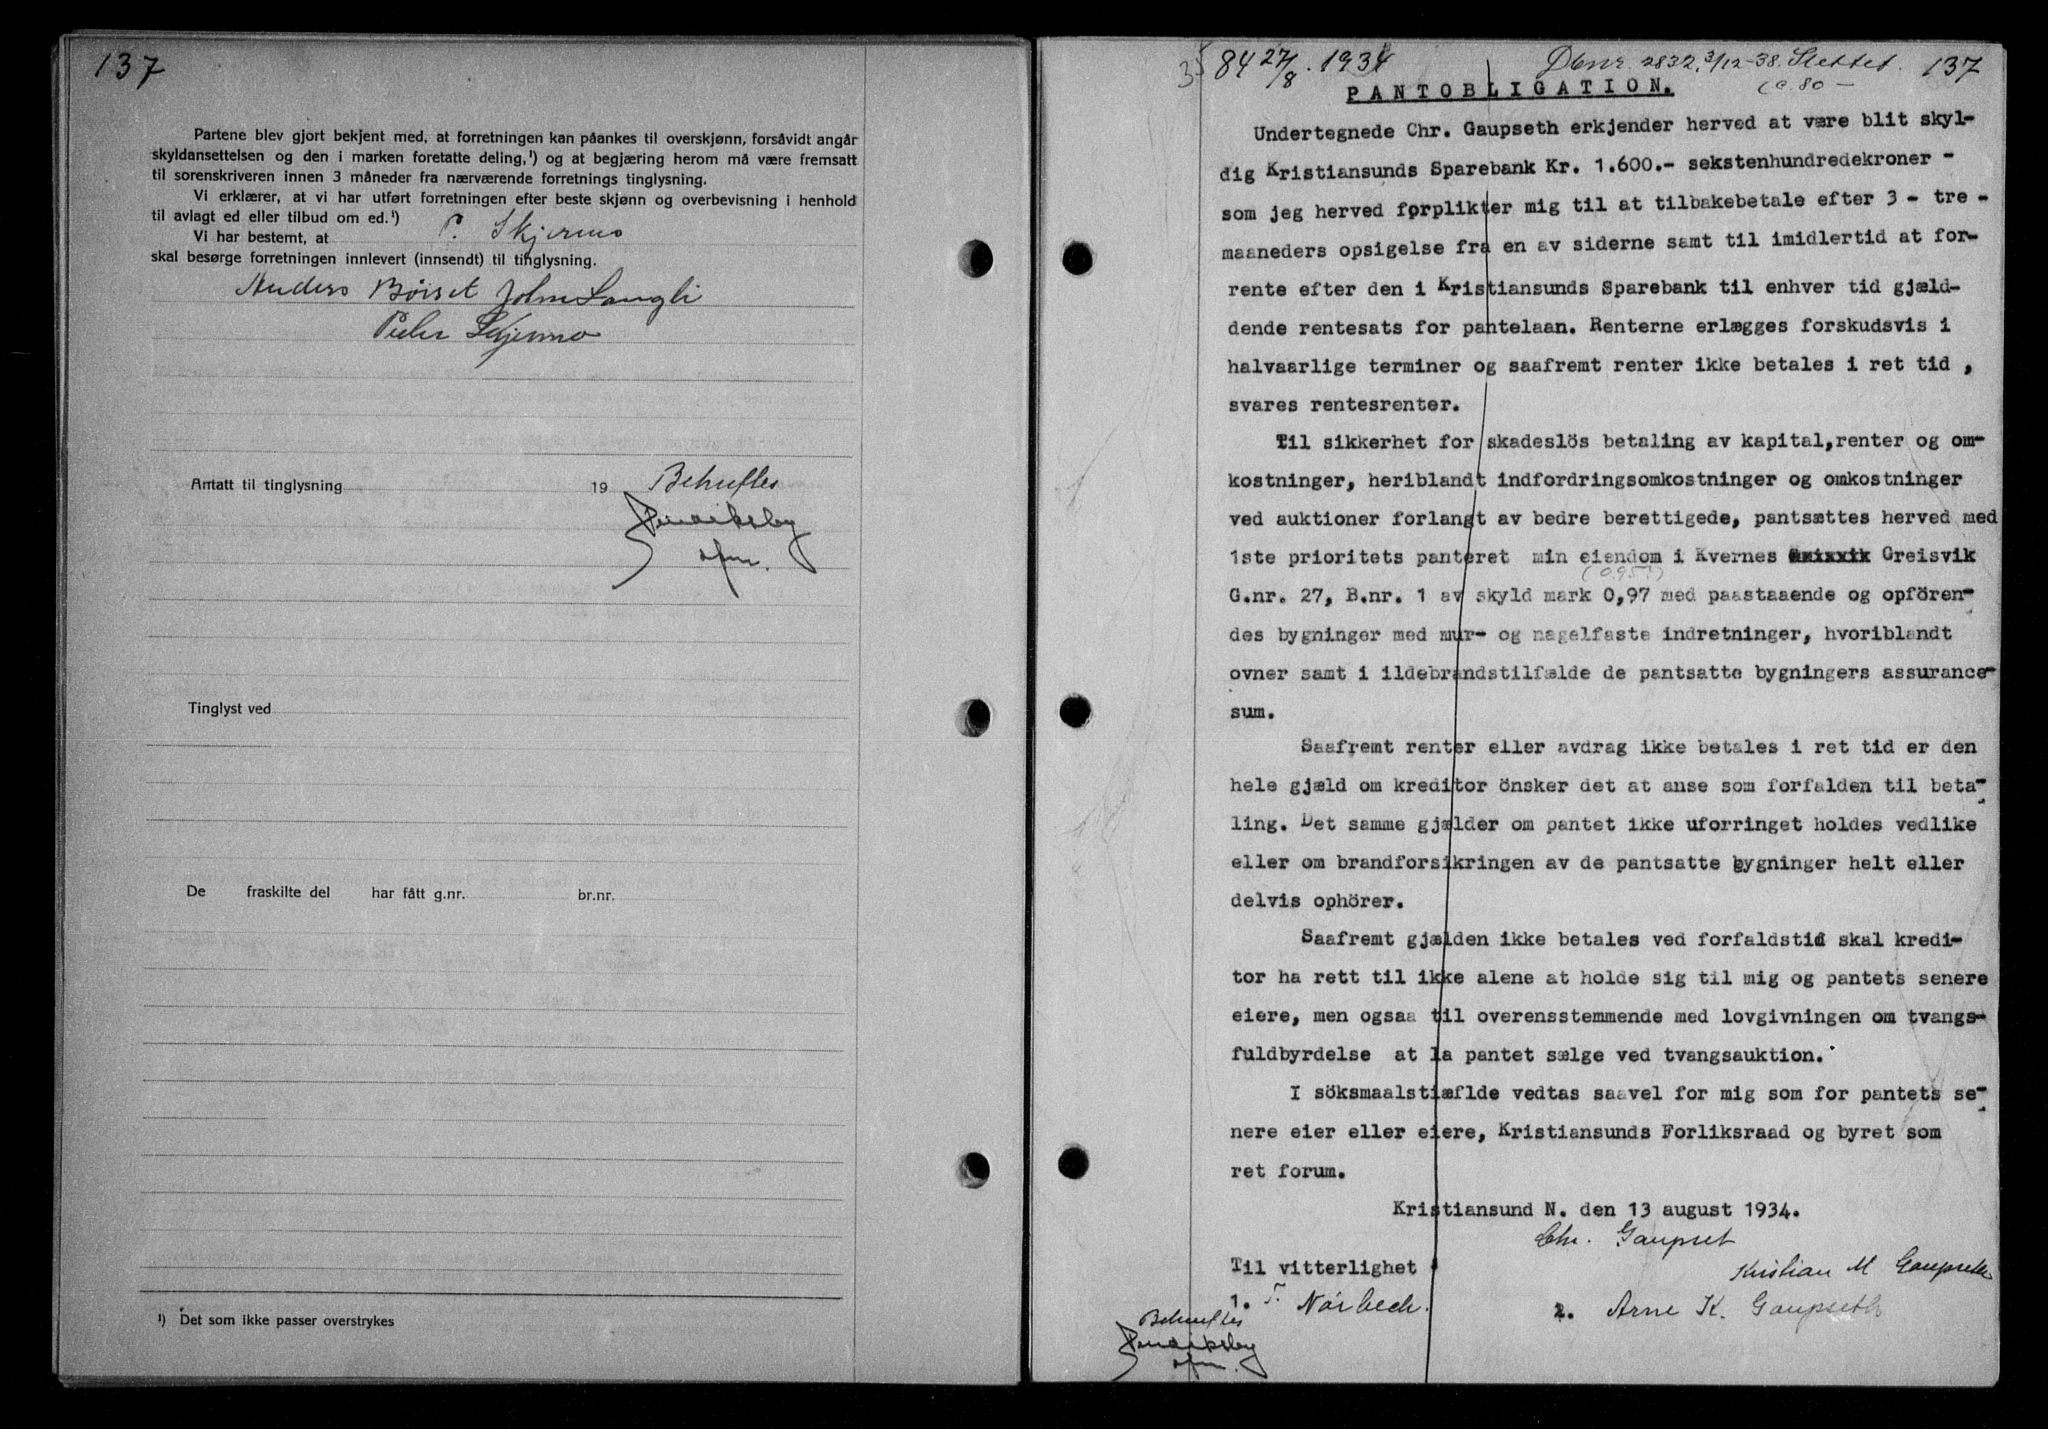 137
Partene blev gjort bekjent med, at forretningen kan påankes til overskjønn, forsåvidt angår
skyldansettelsen og den i marken foretatte deling,¹) og at begjæring herom må være fremsatt
til sorenskriveren innen 3 måneder fra nærværende forretnings tinglysning.
Vi erklærer, at vi har utført forretningen efter beste skjønn og overbevisning i henhold
til avlagt ed eller tilbud om ed.¹)
Vi har bestemt, at P. Skjermo
skal besørge forretningen innlevert (innsendt) til tinglysning.
Anders Böiset John Langli
Peder Skjermo
Antatt til tinglysning 19
Behuftes
Tinglyst ved
De fraskilte del har fått g.nr. br.nr.
¹) Det som ikke passer overstrykes
84 27/8. 1934 Dbnr. 2832, 3/12-38. Slettet. 137
PANTOBLIGATION.
Undertegnede Chr. Gaupseth erkjender herved at være blit skyl-
dig Kristiansunds Sparebank Kr. 1.600.- sekstenhundredekroner -
som jeg herved forplikter mig til at tilbakebetale efter 3 - tre -
maaneders opsigelse fra en av siderne samt til imidlertid at for-
rente efter den i Kristiansunds Sparebank til enhver tid gjæld-
dende rentesats for pantelaan. Renterne erlægges forskudsvis i
halvaarlige terminer og saafremt renter ikke betales i ret tid ,
svares rentesrenter.
Til sikkerhet for skadeslös betaling av kapital, renter og om-
kostninger, heriblandt indfordringsomkostninger og omkostninger
ved auktioner forlangt av bedre berettigede, pantsættes herved med
1ste prioritets panteret min eiendom i Kvernes Greisvik
G.nr. 27, B.nr. 1 av skyld mark 0,97 med paastaaende og opfören-
des bygninger med mur- og nagelfaste indretninger, hvoriblandt
ovner samt i ildebrandstilfælde de pantsatte bygningers assurance-
sum.
Saafremt renter eller avdrag ikke betales i ret tid er den
hele gjæld om kreditor önsker det at anse som forfalden til beta-
ling. Det samme gjælder om pantet ikke uforringet holdes vedlike
eller om brandforsikringen av de pantsatte bygninger helt eller
delvis ophörer.
Saafremt gjælden ikke betales ved forfaldstid skal kredi-
tor ha rett til ikke alene at holde sig til mig og pantets senere
eiere, men ogsaa til overensstemmende med lovgivningen om tvangs-
fuldbyrdelse at la pantet sælge ved tvangsauktion.
I söksmaalstiæflde vedtas saavel for mig som for pantets se-
nere eier eller eiere, Kristiansunds Forliksraad og byret som
ret forum.
Kristiansund N. den 13 august 1934.
Chr. Gaupset
Til vitterlighet Kristian M Gaupseth
1. T. Nörbech. 2. Arne K. Gaupseth
Behuftes